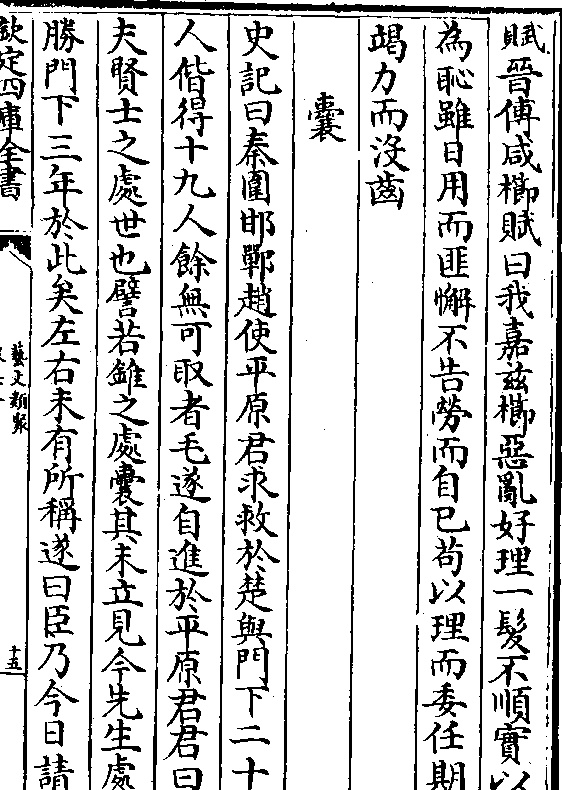 賦晉傅咸櫛賦曰我嘉兹櫛惡亂好理一髪不順實以
為恥雖日用而匪懈不告勞而自已苟以理而委任期
竭力而沒齒
囊
史記曰秦圍邯鄲趙使平原君求救於楚與門下二十
人偕得十九人餘無可取者毛遂自進於平原君君曰
夫賢士之處世也譬若錐之處囊其末立見今先生處
勝門下三年於此矣左右未有所稱遂曰臣乃今日請
欽定四庫全書
藝文類聚
十五